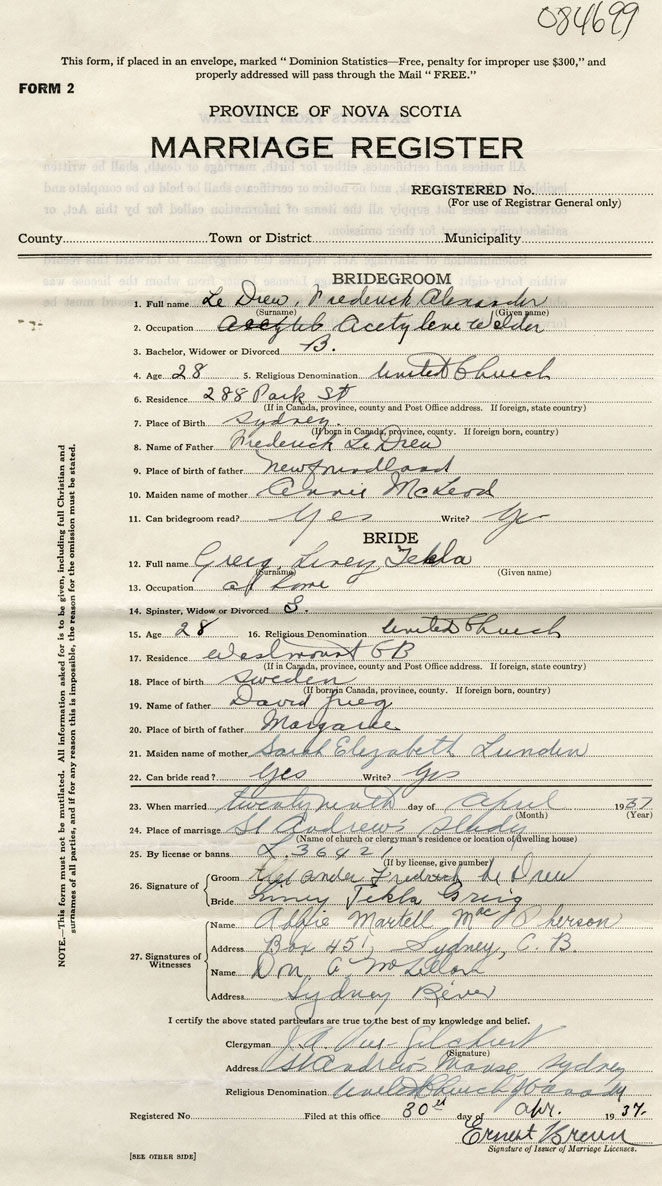 084699
This form, if placed in an envelope, marked " Dominion Statistics—Free, penalty for improper use $300," and
properly addressed will pass through the Mail " FREE."
FORM 2
PROVINCE OF NOVA SCOTIA
MARRIAGE REGISTER
REGISTERED No.
(For use of Registrar General only)
County Town or District Municipality
BRIDEGROOM
1. Full name Le Drew, Frederick Alexander
(Surname) (Given name)
2. Occupation Acetylene Welder
3. Bachelor, Widower or Divorced B.
4. Age 28 5. Religious Denomination United Church
6. Residence 288 Park St
(If in Canada, province, county and Post Office address. If foreign, state country)
7. Place of Birth Sydney.
(If born in Canada, province, county. If foreign born, country)
8. Name of Father Frederick Le Drew
9. Place of birth of father Newfoundland
10. Maiden name of mother Annie McLeod
11. Can bridegroom read? Yes Write? Yes
BRIDE
12. Full name Greig, Liney Tekla
(Surname) (Given name)
13. Occupation at home
14. Spinster, Widow or Divorced S.
15. Age 28 16. Religious Denomination United Church
17. Residence Westmount CB
(If in Canada, province, county and Post Office address. If foreign, state country)
18. Place of birth Sweden
(If born in Canada, province, county. If foreign born, country)
19. Name of father David Greg
20. Place of birth of father Margaree
21. Maiden name of mother Sarah Elizabeth Lundin
22. Can bride read? Yes Write? Yes
23. When married twenty ninth day of April 1937
(Month) (Year)
24. Place of marriage St Andrew's Sydney
(Name of church or clergyman's residence or location of dwelling house)
25. By license or banns L 36421
(If by license, give number)
26. Signature of
Groom Alexander Fredrick Le Drew
Bride Linney Tekla Greig
27. Signatures of Witnesses
Name Martell MacPherson
Address Box 451, Sydney, C. B.
Name Don A McLellan
Address Sydney River
I certify the above stated particulars are true to the best of my knowledge and belief.
Clergyman J. A.
(Signature)
Address St Andrew's Manse, Sydney
Religious Denomination United Church of Canada
Registered No. Filed at this office 30th day of Apr. 1937.
Ernest Brown
Signature of Issuer of Marriage Licenses.
[SEE OTHER SIDE]
NOTE.—This form must not be mutilated. All information asked for is to be given, including full Christian and
surnames of all parties, and if for any reason this is impossible, the reason for the omission must be stated.